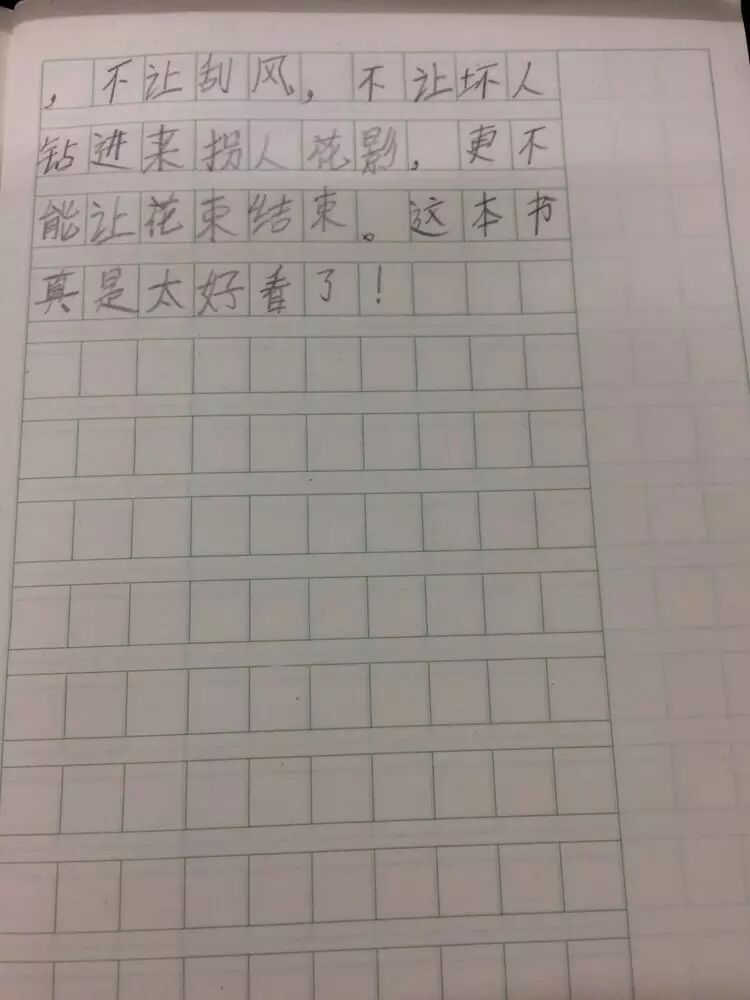 ，不让刮风，不让坏人
钻进来拐人花影，更不
能让花束结束。这本书
真是太好看了！